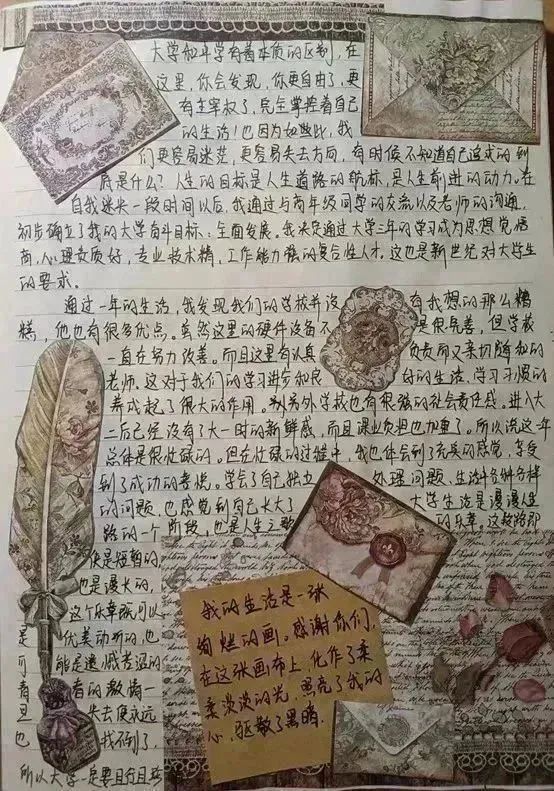 大学和中学有着本质的区别，在
这里，你会发现，你更自由了，更
有主宰权了，完全掌控着自己
的生活！也因为如此，我
们更容易迷茫，更容易失去方向，有时候不知道自己追求的到
底是什么？人生的目标是人生道路的航标，是人生前进的动力。在
自我迷失一段时间以后，我通过与高年级同学的交流以及老师的沟通，
初步确立了我的大学奋斗目标：全面发展。我决定通过大学三年的学习成为思想觉悟
高，心理素质好，专业技术精，工作能力强的复合性人才。这也是新世纪对大学生
的要求。
通过一年的生活，我发现我们的学校并没有我想的那么糟
糕，他也有很多优点。虽然这里的硬件设备不是很完善，但学校
一直在努力改善。而且这里有认真负责而又亲切随和的
老师。这对于我们的学习进步和良好的生活、学习习惯的
养成起了很大的作用。另外学校也有很强的社会责任感。进入大
二后已经没有了大一时的新鲜感，而且课业负担也加重了。所以说这一年
总体是很忙碌的。但在忙碌的过程中，我也体会到了充实的感觉，享受
到了成功的喜悦。学会了自己独立处理问题、生活中各种各样
的问题，也感觉到自己长大了 大学生活是漫漫人生
路的一个阶段，也是人生之歌的乐章。这段路即
使是短暂的
也是漫长的，
这个乐章既可以
是优美动听的，也
可能是
者的激情一
旦失去便永远
也找不到了，
所以大学一定要且行且珍
我的生活是一张
绚烂的画。感谢你们，
在这张画布上，化作了柔
柔淡淡的光，照亮了我的
心，驱散了黑暗.